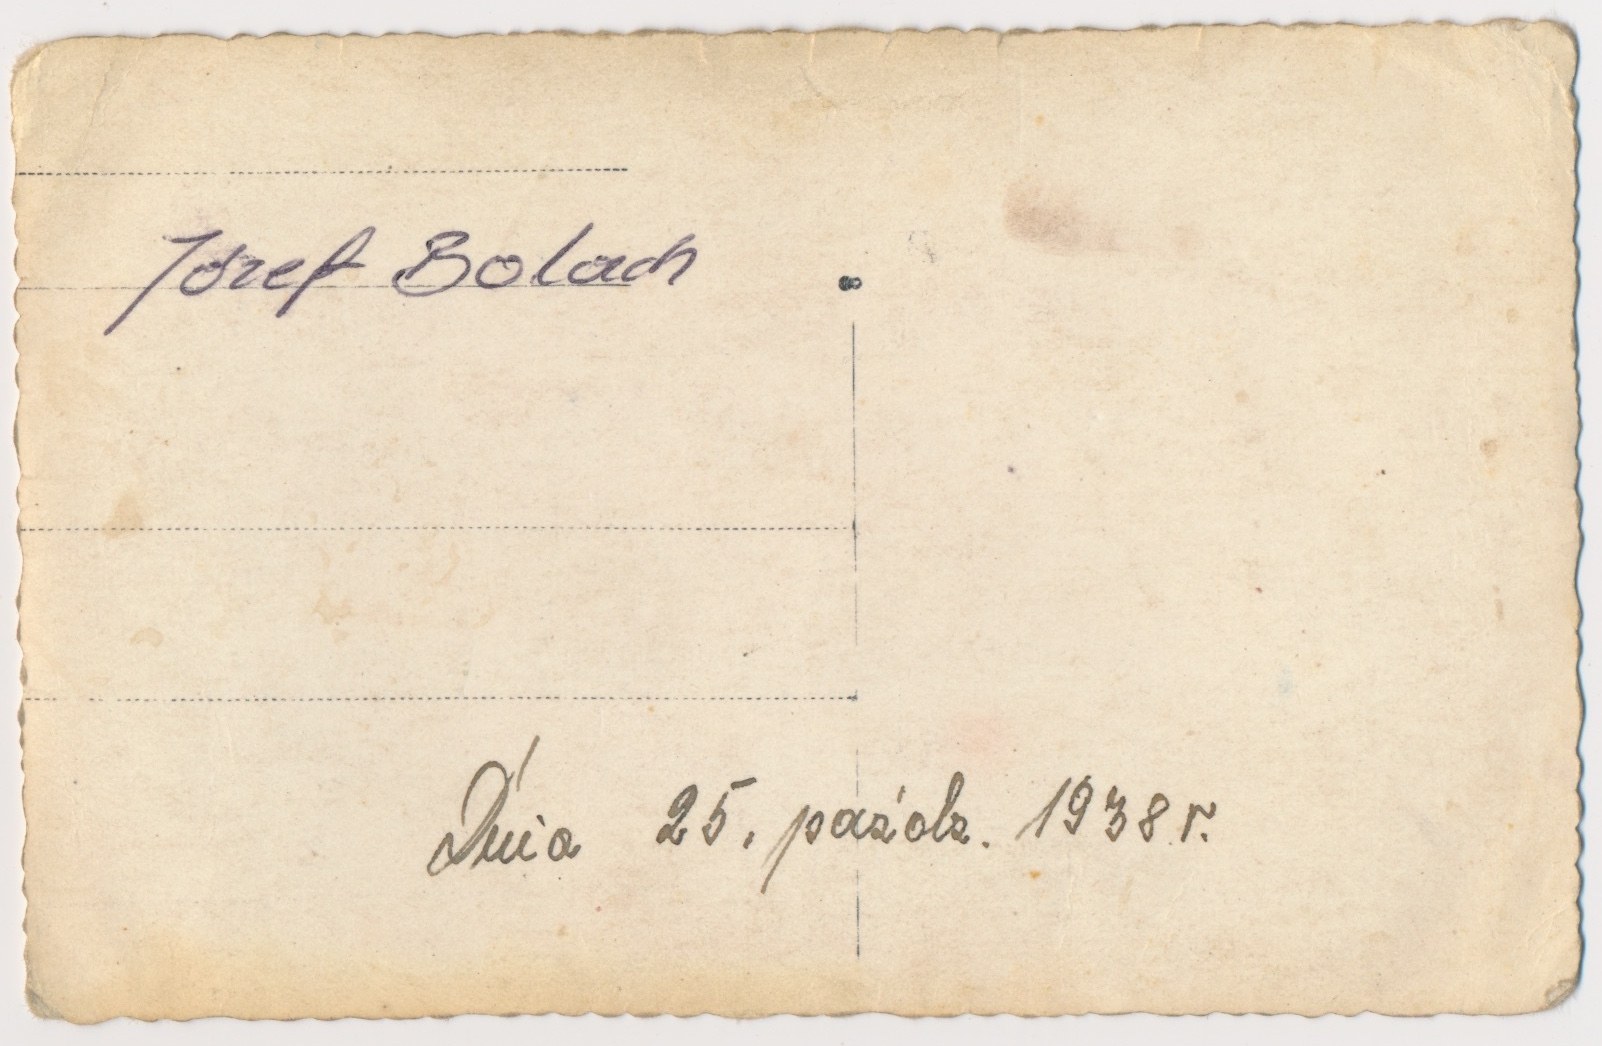 Józef Bolach
Dnia 25. paźdz. 1938 r.